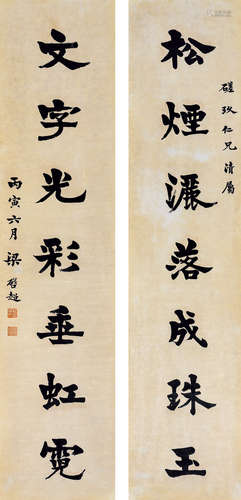 磋玖仁兄清屬
松煙灑落成珠玉
文字光彩垂虹霓
丙寅六月梁啓超